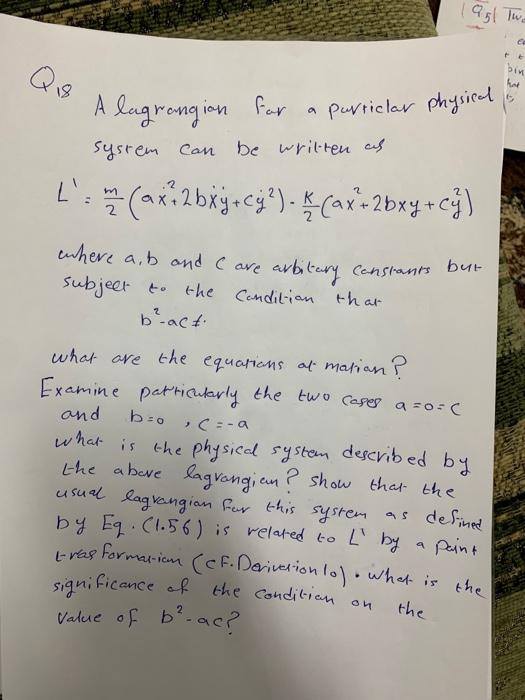 Q18
A lagrangian for a particlar physical
system can be written as
L' = m/2 (aẋ² + 2bẋẏ + cẏ²) - K/2 (ax² + 2bxy + cy²)
where a, b and c are arbitary constants but
subject to the condition that
b²-ac ≠
what are the equations of motion?
Examine particularly the two cases a=0=c
and b=0, c=-a
what is the physical system described by
the above lagrangian? show that the
usual lagrangian for this system as defined
by Eq. (1.56) is related to L' by a point
trasformation (cF. Derivation 10). what is the
significance of the condition on the
value of b²-ac?
Q5